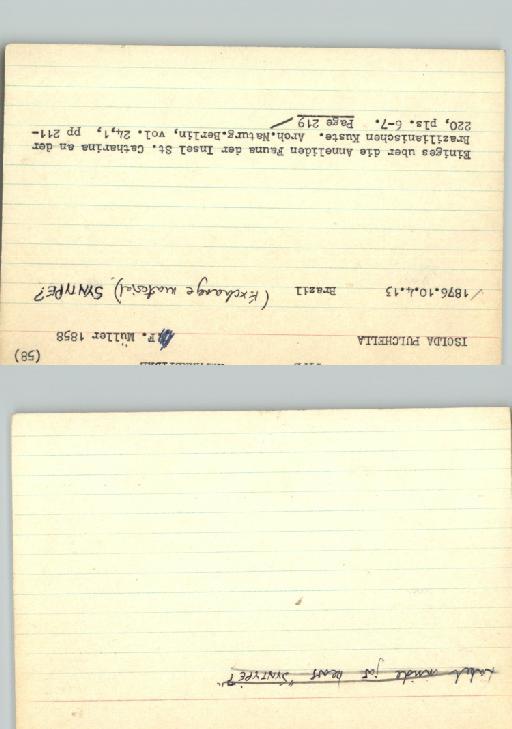 (58)
ISOLDA PULCHELLA F. Müller 1858
1876.10.4.13 Brazil (Exchange material) SYNTYPE?
Einiges uber die Anneliden Fauna der Insel St. Catharina an der
Brazilianischen Kuste. Arch.Naturg.Berlin, vol. 24,1, pp 211-
220, pls. 6-7. Page 219
Label inside jar bears "SYNTYPE?"